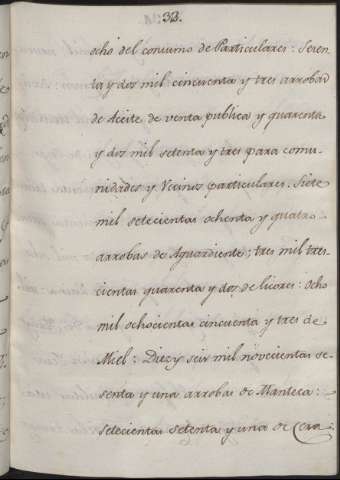 33.
ocho del consumo de Particulares: Seten-
ta y dos mil cincuenta y tres arrobas
de Aceite de venta publica y quarenta
y dos mil setenta y tres para comu-
nidades y Vecinos particulares. Siete
mil setecientas ochenta y quatro
arrobas de Aguardiente; tres mil tres-
cientas quarenta y dos de licores: Ocho
mil ochocientas cincuenta y tres de
Miel: Diez y seis mil novecientas se-
senta y una arrobas de Manteca:
setecientas setenta y una de Cera